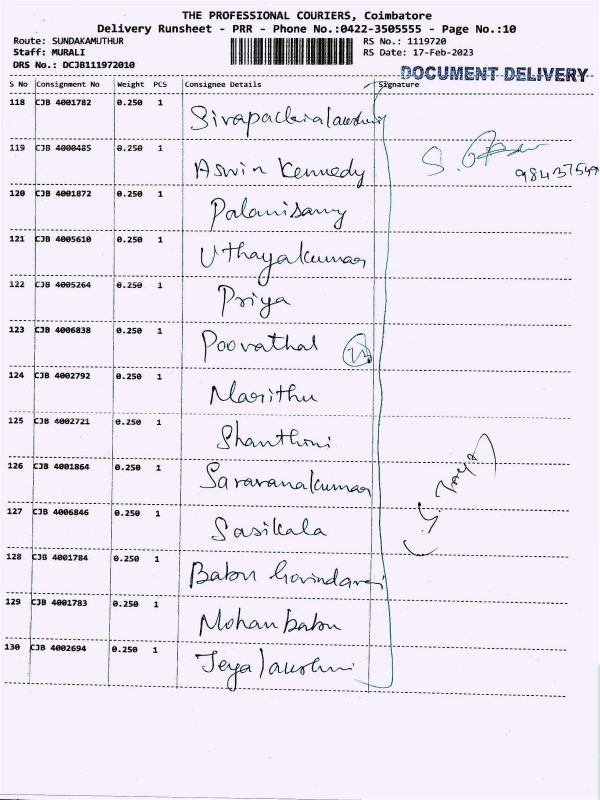 THE PROFESSIONAL COURIERS, Coimbatore
Delivery Runsheet - PRR - Phone No.:0422-3505555 - Page No.:10
Route: SUNDAKAMUTHUR RS No.: 1119720
Staff: MURALI RS Date: 17-Feb-2023
DRS No.: DCJB111972010
DOCUMENT DELIVERY
S No Consignment No Weight PCS Consignee Details Signature
118 CJB 4001782 0.250 1 Sivapackialakshmi
119 CJB 4000485 0.250 1 Aswin Kennedy
120 CJB 4001872 0.250 1 Palanisamy
121 CJB 4005610 0.250 1 Uthayakumar
122 CJB 4005264 0.250 1 Priya
123 CJB 4006838 0.250 1 Poovathal
124 CJB 4002792 0.250 1 Marithu
125 CJB 4002721 0.250 1 Shanthini
126 CJB 4001864 0.250 1 Saravanakumar
127 CJB 4006846 0.250 1 Sasikala
128 CJB 4001784 0.250 1 Babu Govindaraj
129 CJB 4001783 0.250 1 Mohan babu
130 CJB 4002694 0.250 1 Jeyalakshmi